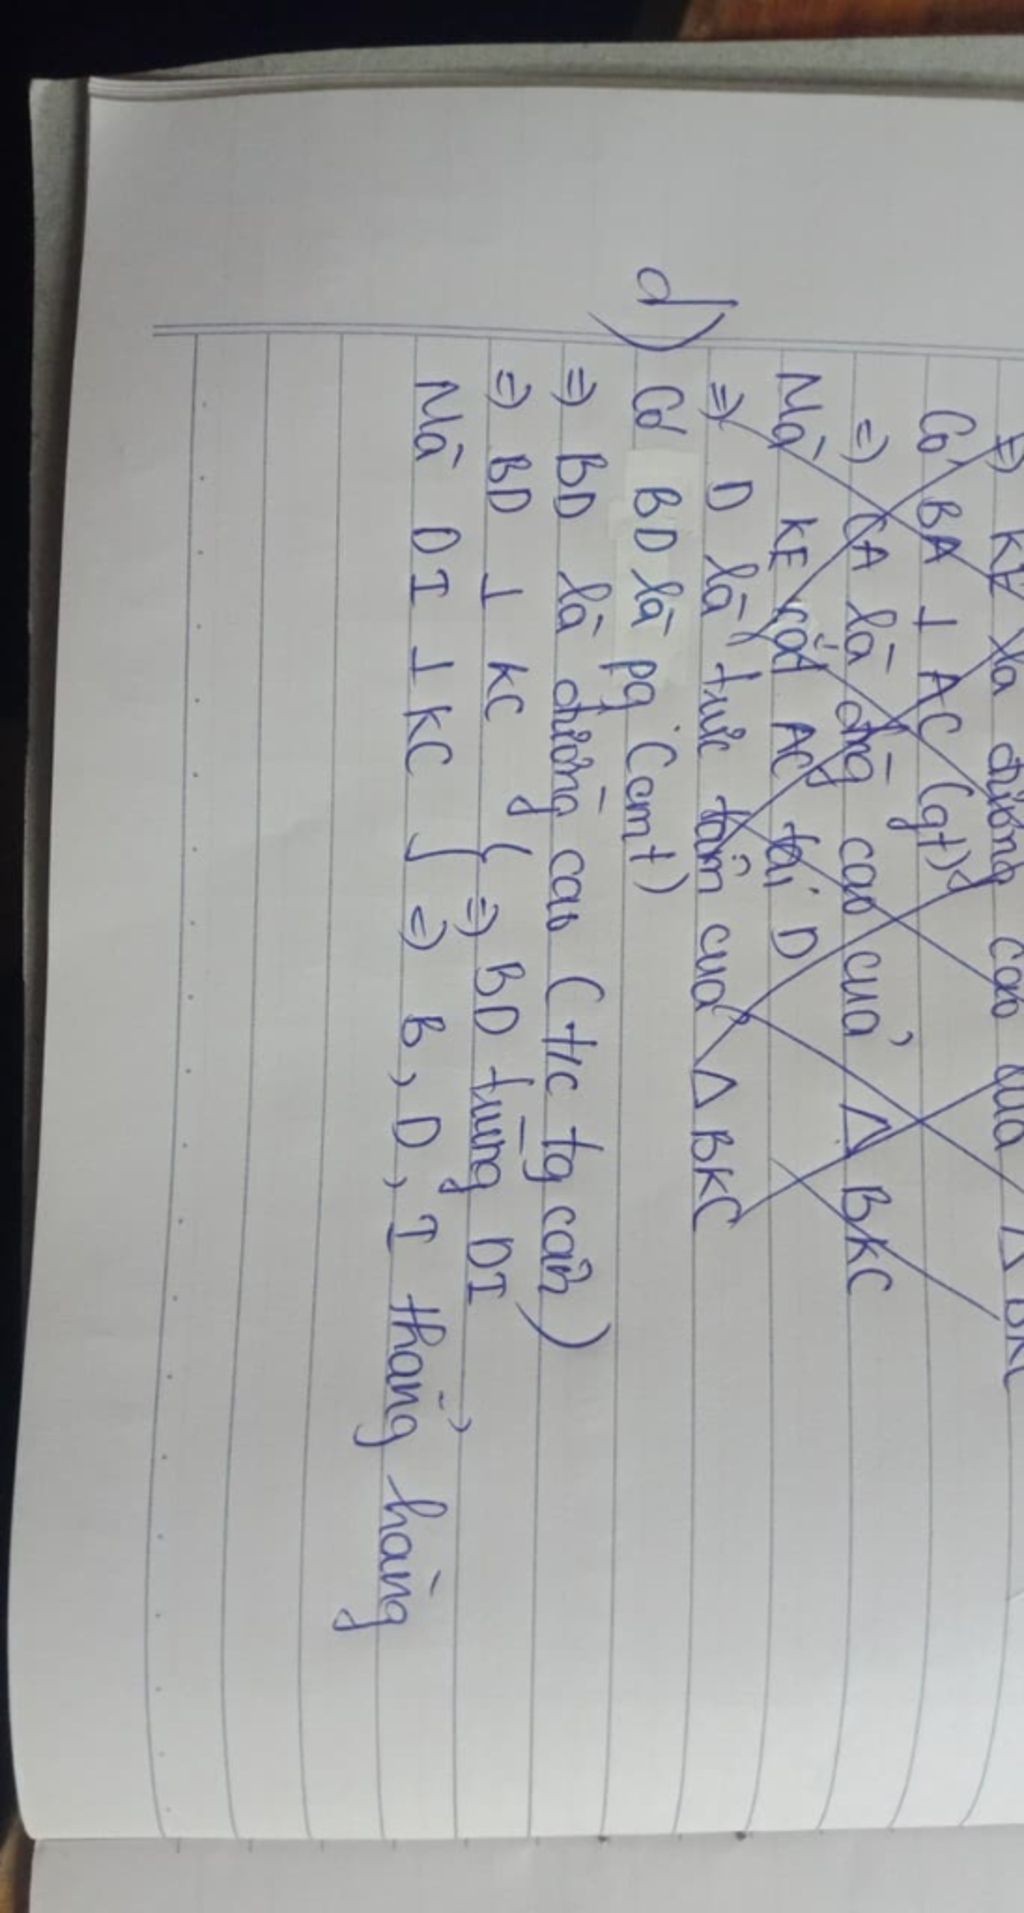 ⇒ KE là đường cao của Δ BKC
Có BA ⊥ AC (gt)
⇒ CA là đường cao của Δ BKC
Mà KE cắt AC tại D
⇒ D là trực tâm của Δ BKC
d) Có BD là pg (cmt)
⇒ BD là đường cao (t/c tg cân)
⇒ BD ⊥ KC } ⇒ BD trùng DI
Mà DI ⊥ KC } ⇒ B, D, I thẳng hàng